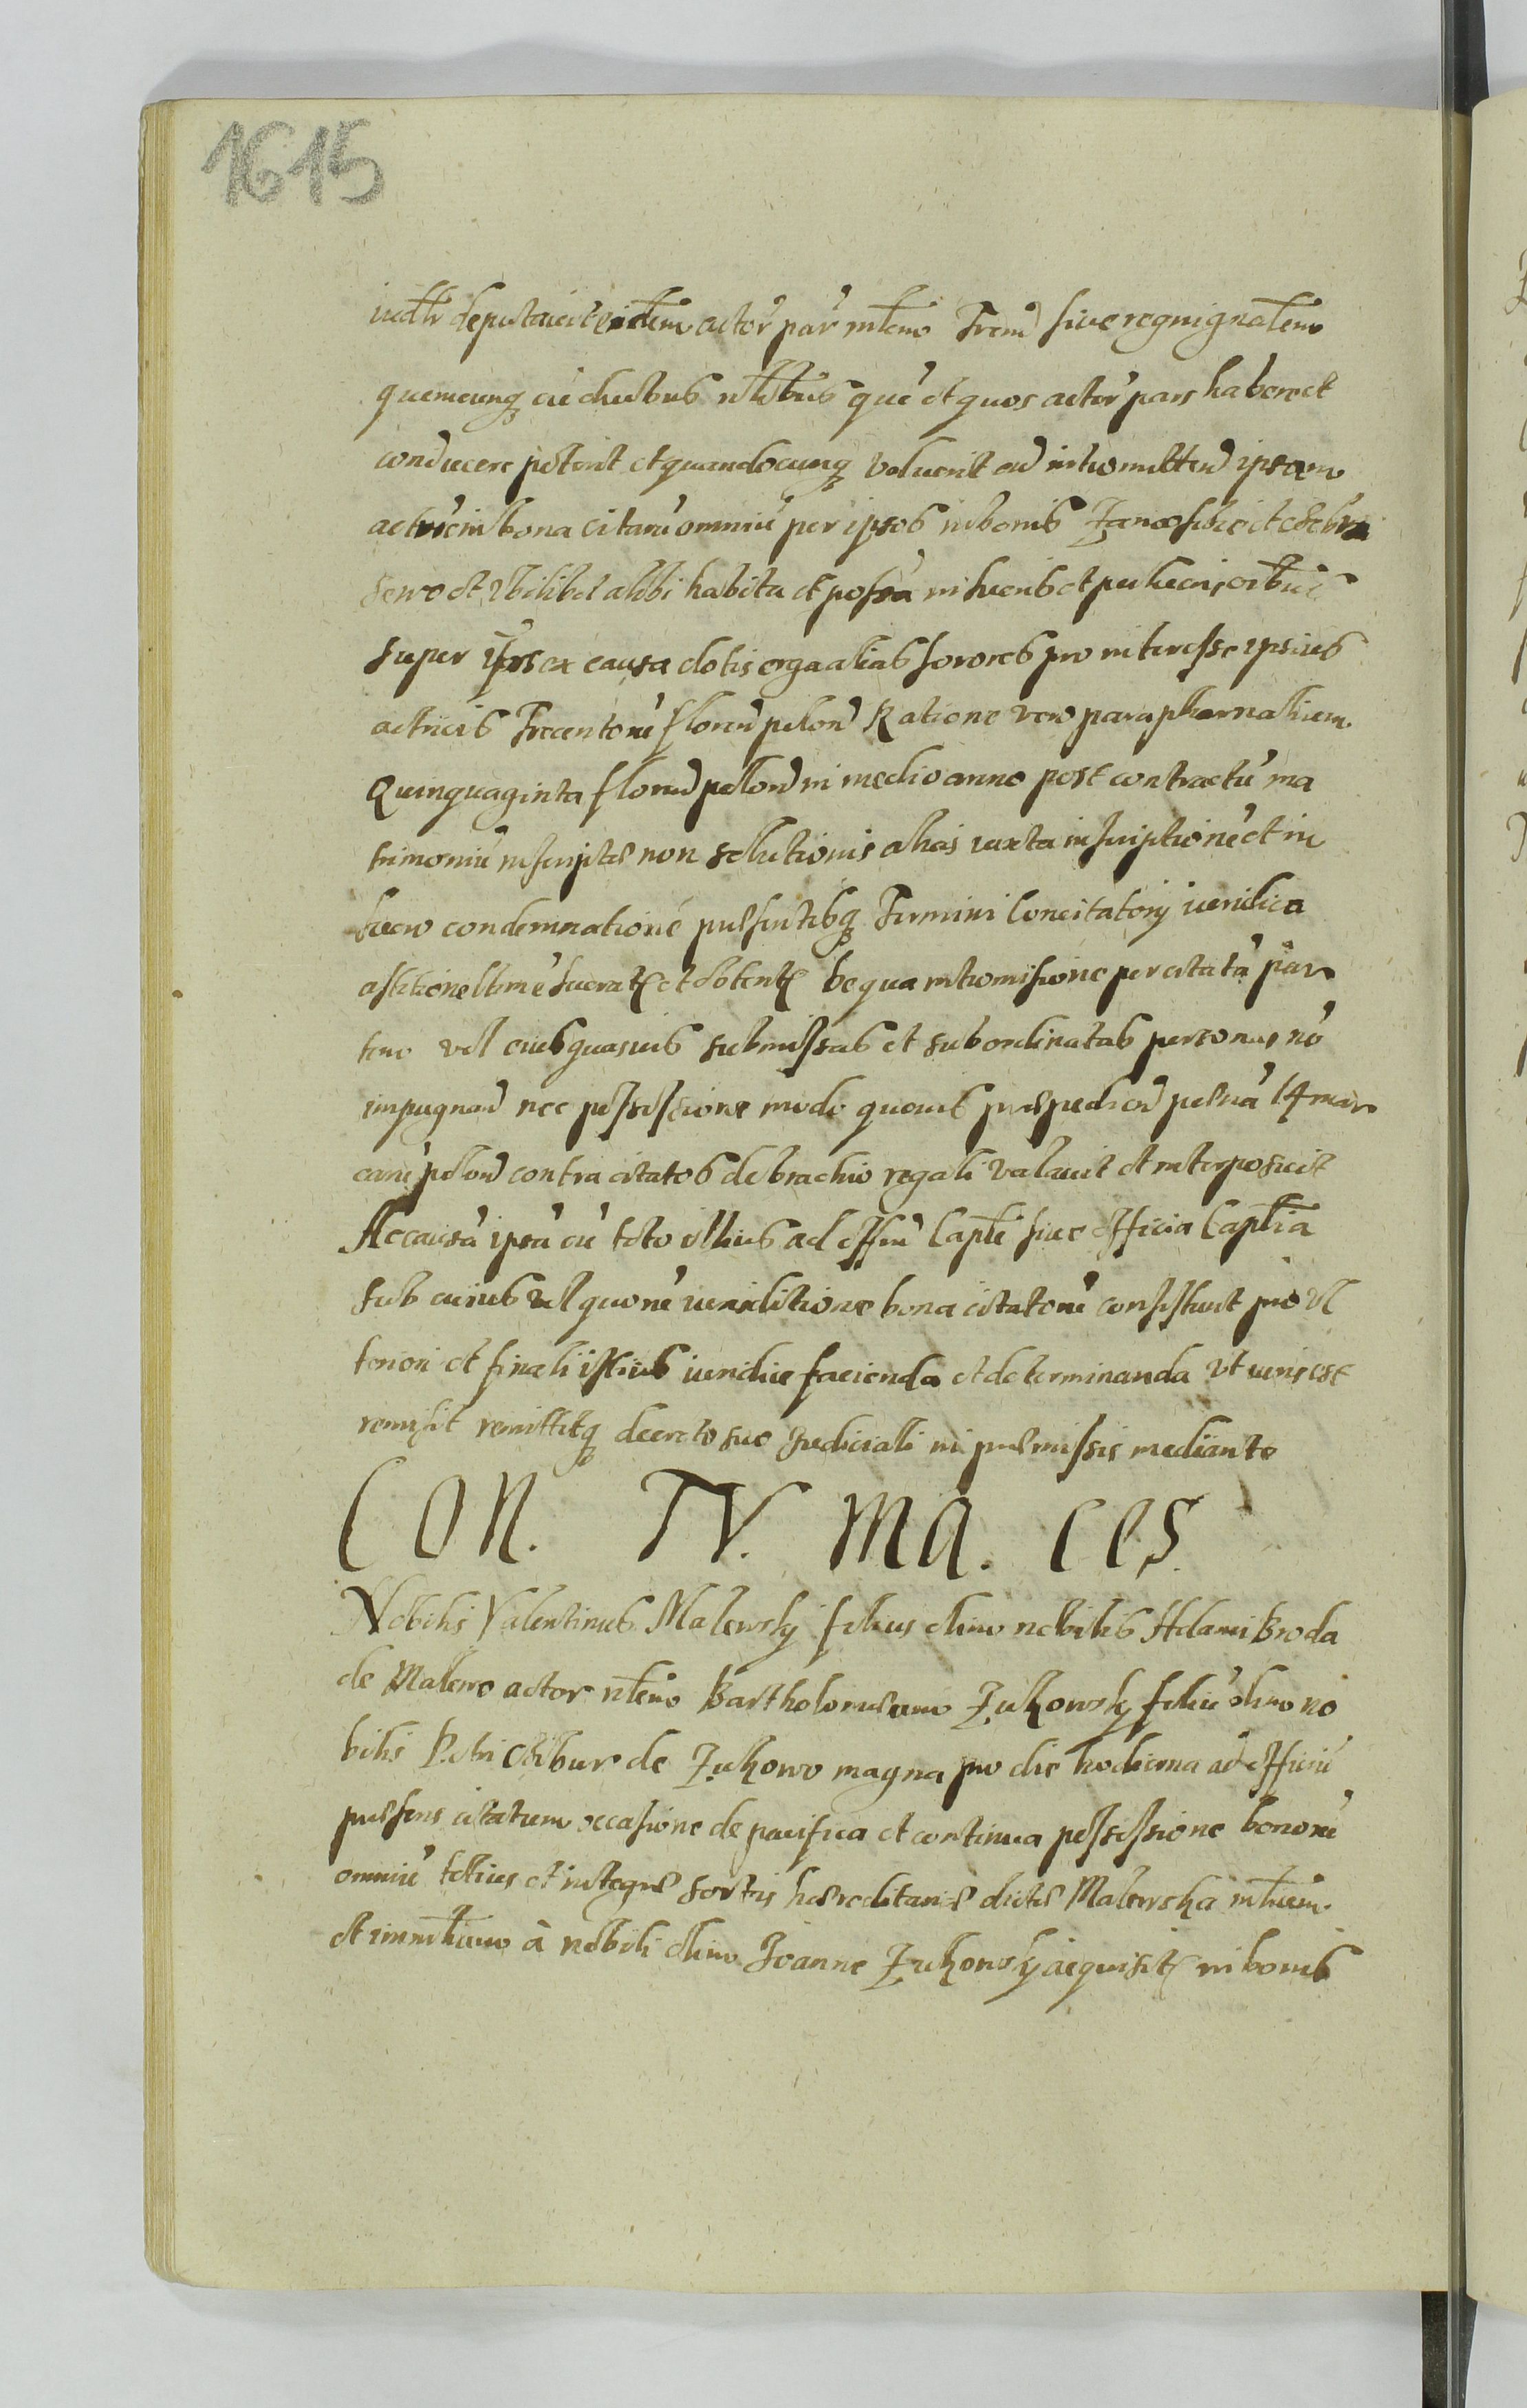 1615
deputavit eidem actor par mlem sive regnignalem
quemcunq cu duobus nlibus que et quos actor pars haberet
conducere poterit et quandocunq voluerit ad intromittend ipsam
in bona citaru omniu per ipsos in bonis
et ubilibet alibi habita et possa
super ex causa dotis erga alias sorores pro interesse ipsius
actricis Trecentoru floren polon Ratione vero paraphernalium
Quinquaginta floren polon in medio anno post contractu ma
trimoniu inscriptae non solutionis alias iuxta inscriptione et in
lucro condemnatione Termini Concitatorij iuridica
obtent qua intromisione per citata par
tem vel eius quasvis submissas et subordinatas personas no
impugnan nec possessione modo quovis praepedien poena 14 mar
caru polon contra citatos de brachio regali valavit et interposuit
Ac causa ipsa cu toto illius ad offm Caple sive officia Captia
sub cuius vel quoru iurisditione bona citatoru consistunt pro ul
teriori et finali istius iuridice facienda et determinanda ut iuris est
remisit remittitq decreto suo Judiciali in praemissis mediante
Con. Tv. ma. ces.
Nobilis Valentinus Malewsky filius olim nobilis Adami Broda
de Malewo actor nlem Bartholomaeum Zukowsky filiu olim no
bilis Petri de Zukowo magna pro die hodierna ad officiu
praesens citatum occasione de pacifica et continua possessione bonoru
omniu totius et integrae sortis haereditariae dictae Malewska
et à nobili olim Joanne Zukowsky acquisit in bonis